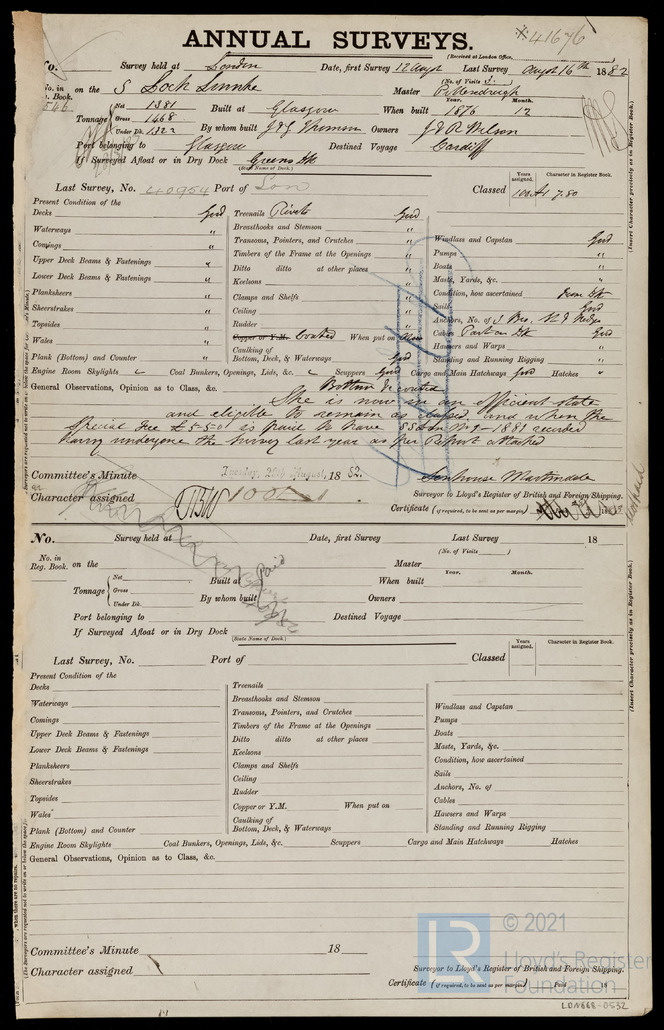 41676
ANNUAL SURVEYS.
(Received at London Office,
No. Survey held at London Date, first Survey 12 Augt Last Survey Augst 16th 1882
(No. of Visits 3.)
No. in Reg. Book. on the S Loch Master
Year. Month.
Tonnage Net 1381 Built at Glasgow When built 1876 12
Gross 1468
Under Dk. 1322 By whom built J & G Thomson Owners J & R Wilson
Port belonging to Glasgow Destined Voyage Cardiff
If Surveyed Afloat or in Dry Dock Greens Dk
(State Name of Dock.)
Last Survey, No. 40954 Port of Lon Classed 100 A1 7.80
Years assigned. Character in Register Book.
Present Condition of the
Decks Good Treenails Rivets Good
Waterways " Breasthooks and Stemson " Windlass and Capstan Good
Comings " Transoms, Pointers, and Crutches " Pumps "
Upper Deck Beams & Fastenings " Timbers of the Frame at the Openings " Boats "
Lower Deck Beams & Fastenings " Ditto ditto at other places " Masts, Yards, &c. "
Planksheers " Keelsons " Condition, how ascertained From Dk
Sheerstrakes " Clamps and Shelfs " Sails Good
Topsides " Ceiling " Anchors, No. of 3 Bro. St 2 Kedge
Wales " Rudder " Cables Part on Dk Good
Copper or Y.M. Coated When put on Now Hawsers and Warps "
Plank (Bottom) and Counter " Caulking of Bottom, Deck, & Waterways Good Standing and Running Rigging "
Engine Room Skylights Coal Bunkers, Openings, Lids, &c. Scuppers Good Cargo and Main Hatchways Good Hatches "
General Observations, Opinion as to Class, &c. Bottom coated
She is now in an efficient state
and eligible to remain as classed and when the
Special Fee £5-5-0 is paid to have SS Lon No 1-1881 recorded
having undergone the Survey last year as per Report attached
Committee's Minute Tuesday, August, 1882. Senhouse Martindale
Character assigned 100A1 Surveyor to Lloyd's Register of British and Foreign Shipping.
Certificate (if required, to be sent as per margin)
(Insert Character precisely as in Register Book.)
No. Survey held at Date, first Survey Last Survey 18
(No. of Visits )
No. in Reg. Book. on the Master
Year. Month.
Tonnage Net Built at Paid When built
Gross
Under Dk. By whom built Owners
Port belonging to Destined Voyage
If Surveyed Afloat or in Dry Dock
(State Name of Dock.)
Last Survey, No. Port of Classed
Years assigned. Character in Register Book.
Present Condition of the
Decks Treenails
Waterways Breasthooks and Stemson Windlass and Capstan
Comings Transoms, Pointers, and Crutches Pumps
Upper Deck Beams & Fastenings Timbers of the Frame at the Openings Boats
Lower Deck Beams & Fastenings Ditto ditto at other places Masts, Yards, &c.
Planksheers Keelsons Condition, how ascertained
Sheerstrakes Clamps and Shelfs Sails
Topsides Ceiling Anchors, No. of
Wales Rudder Cables
Copper or Y.M. When put on Hawsers and Warps
Plank (Bottom) and Counter Caulking of Bottom, Deck, & Waterways Standing and Running Rigging
Engine Room Skylights Coal Bunkers, Openings, Lids, &c. Scuppers Cargo and Main Hatchways Hatches
General Observations, Opinion as to Class, &c.
Committee's Minute 18
Character assigned Surveyor to Lloyd's Register of British and Foreign Shipping.
Certificate (if required, to be sent as per margin) Paid 18
(Insert Character precisely as in Register Book.)
LR © 2021
Lloyd's Register
Foundation
LDN668-0532